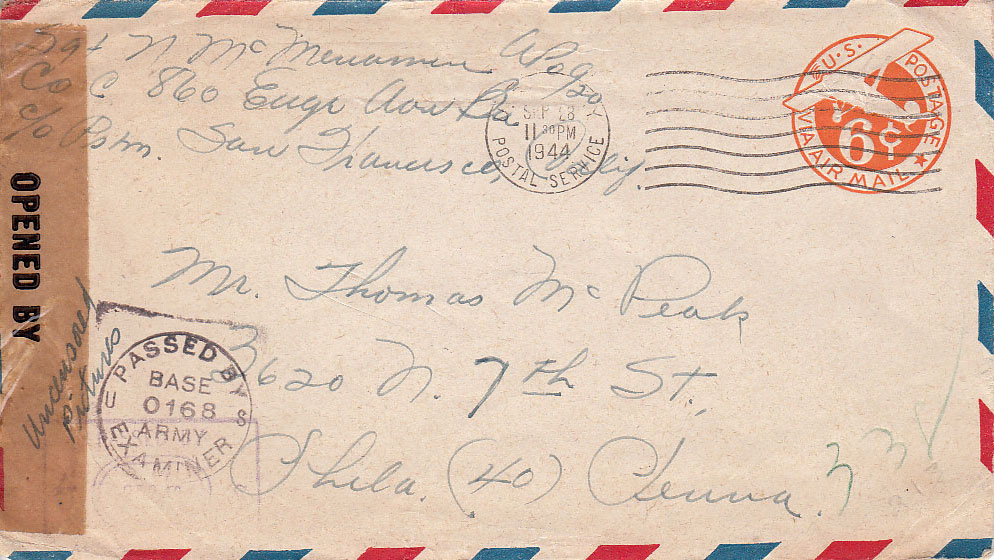 Sgt N McMenamin A.P.O. 920
Co C 860 Engr Avn Bn
c/o P.s.m. San Francisco, Calif.
SEP 28
11 30 PM
1944
POSTAL SERVICE
U.S. POSTAGE
6¢
VIA AIR MAIL
OPENED BY
Uncensored
pictures
PASSED BY
U S
BASE
0168
ARMY
EXAMINER
Mr. Thomas McPeak
3620 N. 7th St.,
Phila. (40) Penna.